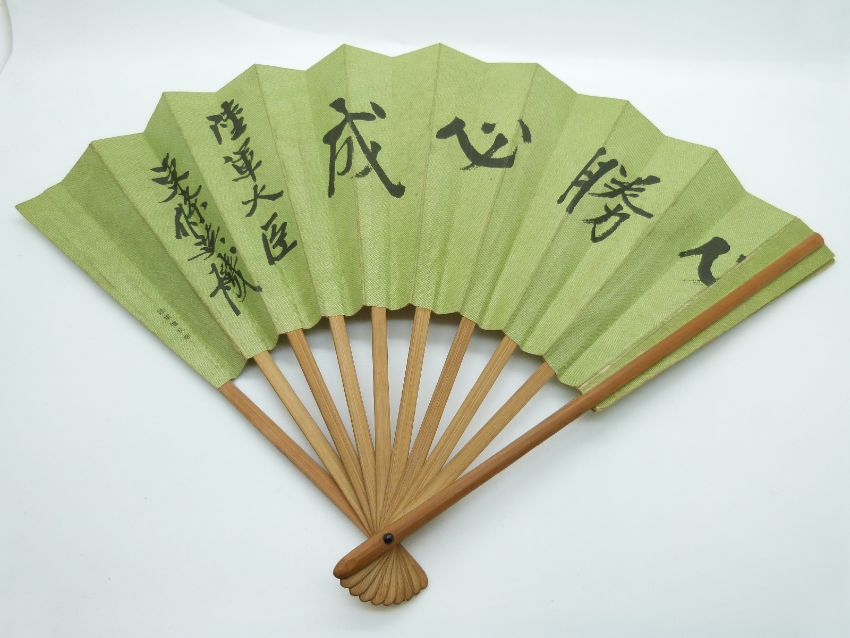 必勝必成
陸軍大臣
東條英機